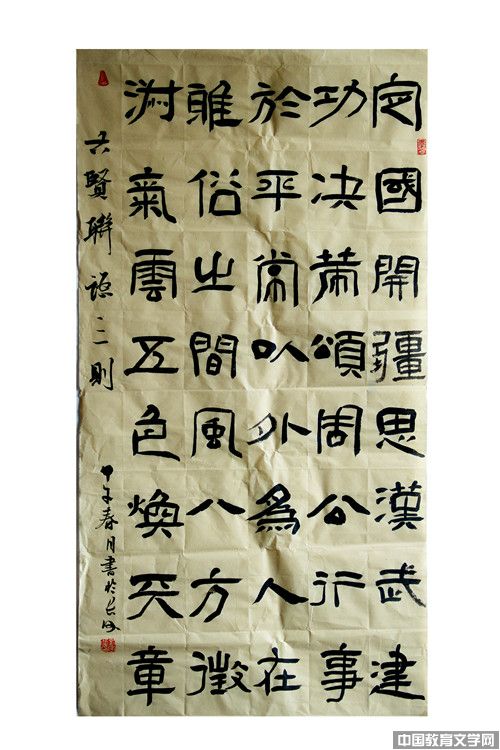 定國開疆思漢武建
功决策頌周公行事
於平常以外爲人在
雅俗之間風八方徵
淑氣雲五色煥天章
古賢聯語三則
甲午春月書於长沙
中国教育文学网